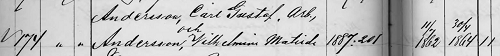 Andersson, Carl Gustaf, Arb,
och
1774 " " Andersson, Wilhelmina Matilda 1887. 201 11/4 1862 30/4 1864 11